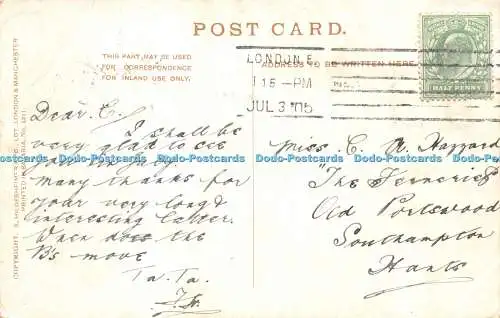 POST CARD.
THIS PART MAY BE USED
FOR CORRESPONDENCE
FOR INLAND USE ONLY.
ADDRESS TO BE WRITTEN HERE
LONDON. E.
1 15 - PM
JUL 3 '05
HALF PENNY
Dear C.
I shall be
very glad to see
many thanks for
your very long &
interesting letter.
When does the
B's move
Ta. Ta.
Miss. C. A. Hazzard
"The Ferneries"
Old Portswood
Southampton
Hants
Dodo-Postcards Dodo-Postcards Dodo-Postcards Dodo-Postcards Dodo-Postcards Dodo-Postcards